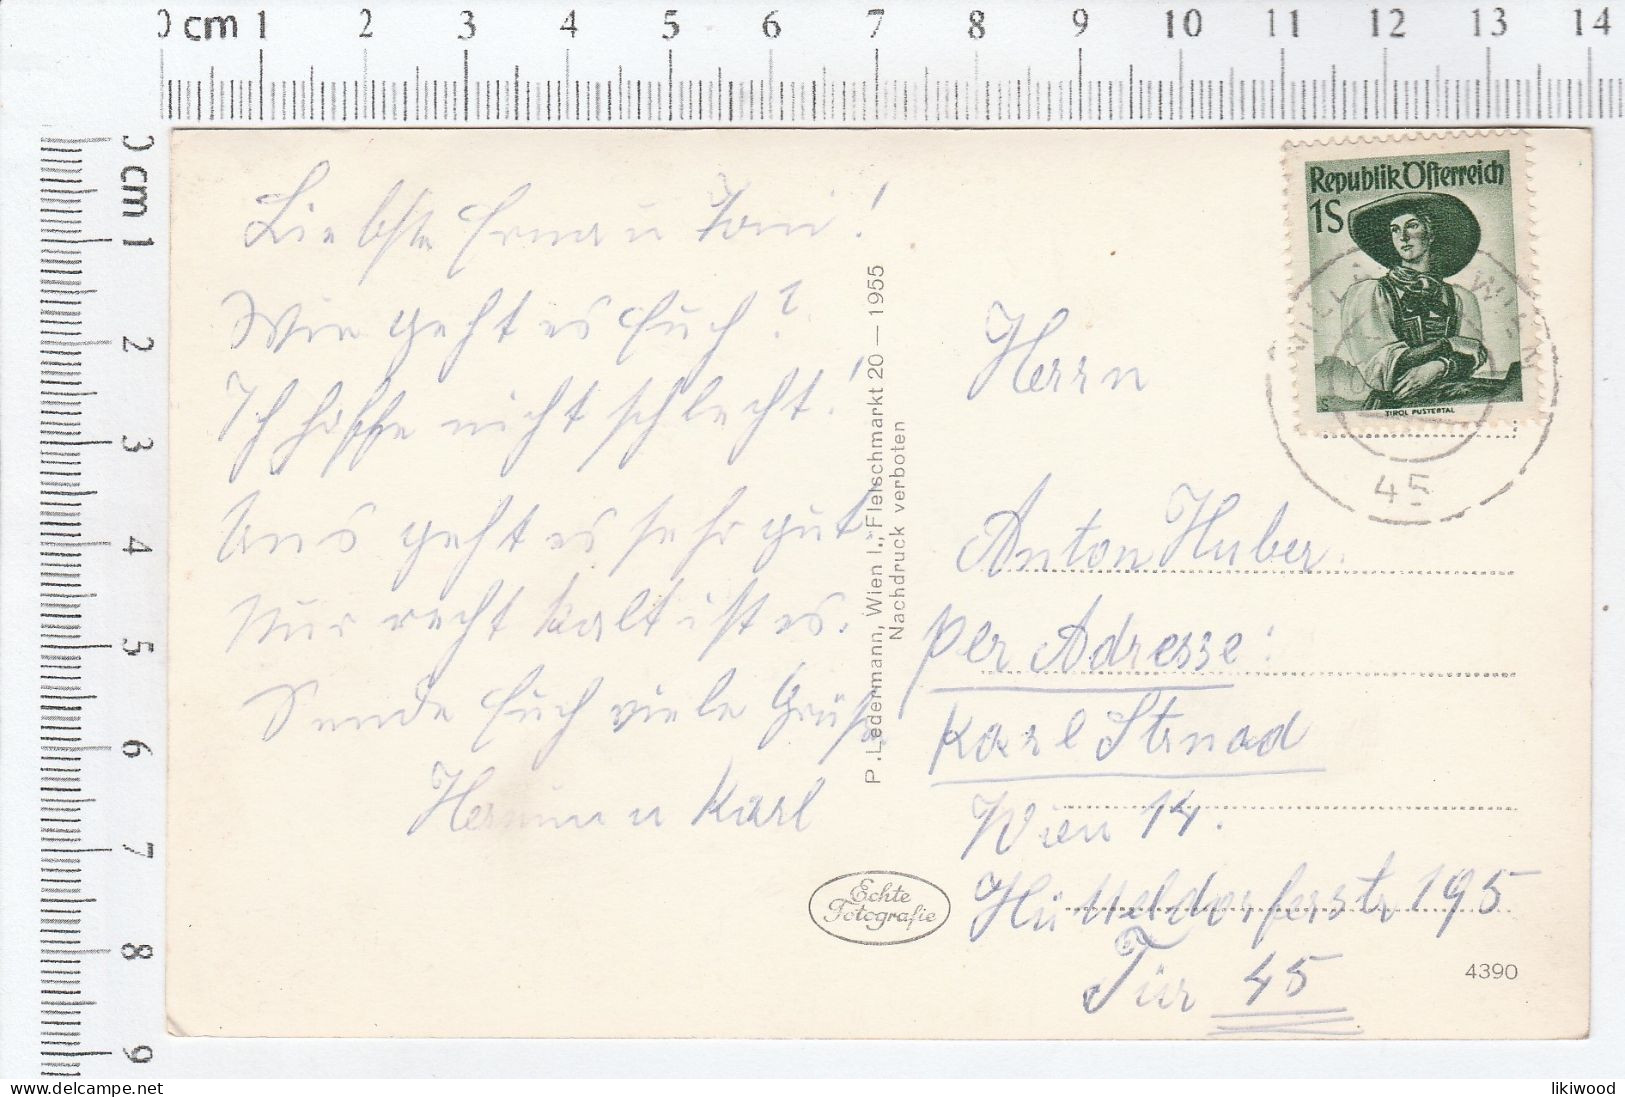 0 cm 1 2 3 4 5 6 7 8 9 10 11 12 13 14
0 cm 1 2 3 4 5 6 7 8 9
Liebste Erna u Toni!
Wie geht es Euch?
Ich hoffe nicht schlecht!
Uns geht es sehr gut
Nur recht kalt ist es.
Sende Euch viele Grüße
Hermin u Karl
P. Ledermann, Wien I., Fleischmarkt 20 — 1955
Nachdruck verboten
Echte
Fotografie
Republik Österreich
1S
TIROL PUSTERTAL
WIEN
45
Herrn
Anton Huber.
per Adresse:
Karl Strnad
Wien 14.
Hütteldorferstr 195
Tür 45
4390
likiwood